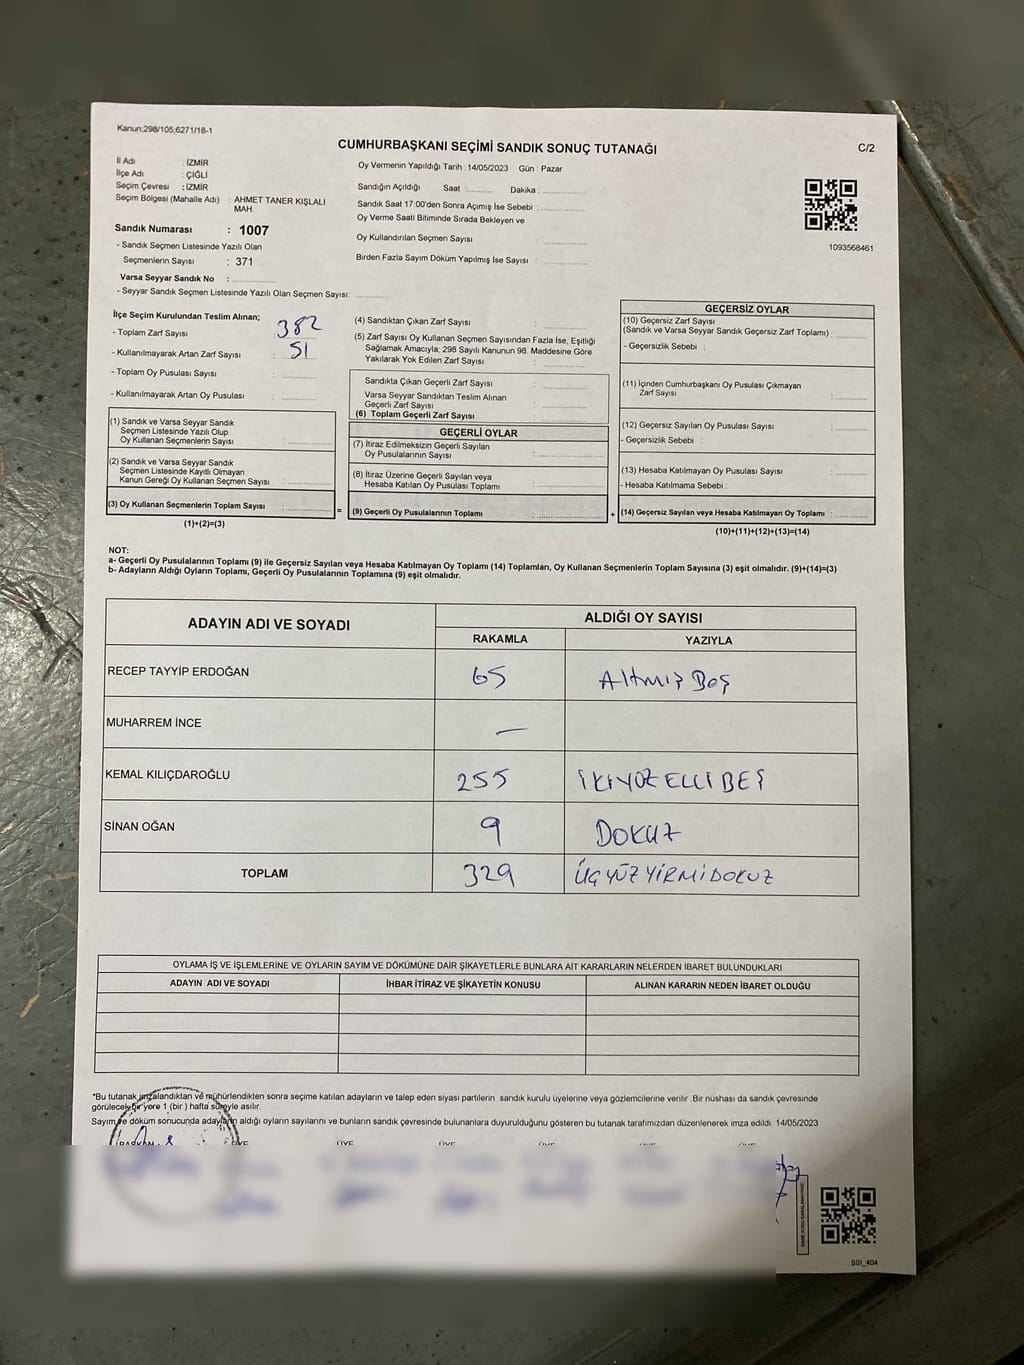 Kanun;298/105,6271/18-1
CUMHURBAŞKANI SEÇİMİ SANDIK SONUÇ TUTANAĞI
C/2
İl Adı : İZMİR
İlçe Adı : ÇİĞLİ
Seçim Çevresi : İZMİR
Seçim Bölgesi (Mahalle Adı) : AHMET TANER KIŞLALI MAH.
Sandık Numarası : 1007
- Sandık Seçmen Listesinde Yazılı Olan
Seçmenlerin Sayısı : 371
Varsa Seyyar Sandık No : ............
- Seyyar Sandık Seçmen Listesinde Yazılı Olan Seçmen Sayısı: ............
Oy Vermenin Yapıldığı Tarih : 14/05/2023 Gün : Pazar
Sandığın Açıldığı Saat : ......... Dakika : ............
Sandık Saat 17:00'den Sonra Açımış İse Sebebi : ............
Oy Verme Saati Bitiminde Sırada Bekleyen ve
Oy Kullandırılan Seçmen Sayısı : ............
Birden Fazla Sayım Döküm Yapılmış İse Sayısı : ............
1093568461
İlçe Seçim Kurulundan Teslim Alınan;
- Toplam Zarf Sayısı : 382
- Kullanılmayarak Artan Zarf Sayısı : 51
- Toplam Oy Pusulası Sayısı : ............
- Kullanılmayarak Artan Oy Pusulası : ............
(1) Sandık ve Varsa Seyyar Sandık
Seçmen Listesinde Yazılı Olup
Oy Kullanan Seçmenlerin Sayısı : ............
(2) Sandık ve Varsa Seyyar Sandık
Seçmen Listesinde Kayıtlı Olmayan
Kanun Gereği Oy Kullanan Seçmen Sayısı : ............
(3) Oy Kullanan Seçmenlerin Toplam Sayısı : ............
(1)+(2)=(3)
(4) Sandıktan Çıkan Zarf Sayısı : ............
(5) Zarf Sayısı Oy Kullanan Seçmen Sayısından Fazla İse, Eşitliği
Sağlamak Amacıyla; 298 Sayılı Kanunun 98. Maddesine Göre
Yakılarak Yok Edilen Zarf Sayısı : ............
Sandıkta Çıkan Geçerli Zarf Sayısı : ............
Varsa Seyyar Sandıktan Teslim Alınan
Geçerli Zarf Sayısı : ............
(6) Toplam Geçerli Zarf Sayısı : ............
GEÇERLİ OYLAR
(7) İtiraz Edilmeksizin Geçerli Sayılan
Oy Pusulalarının Sayısı : ............
(8) İtiraz Üzerine Geçerli Sayılan veya
Hesaba Katılan Oy Pusulası Toplamı : ............
= (9) Geçerli Oy Pusulalarının Toplamı : ............ +
GEÇERSİZ OYLAR
(10) Geçersiz Zarf Sayısı
(Sandık ve Varsa Seyyar Sandık Geçersiz Zarf Toplamı) : ............
- Geçersizlik Sebebi :
(11) İçinden Cumhurbaşkanı Oy Pusulası Çıkmayan
Zarf Sayısı : ............
(12) Geçersiz Sayılan Oy Pusulası Sayısı : ............
- Geçersizlik Sebebi :
(13) Hesaba Katılmayan Oy Pusulası Sayısı : ............
- Hesaba Katılmama Sebebi :
(14) Geçersiz Sayılan veya Hesaba Katılmayan Oy Toplamı : ............
(10)+(11)+(12)+(13)=(14)
NOT:
a- Geçerli Oy Pusulalarının Toplamı (9) ile Geçersiz Sayılan veya Hesaba Katılmayan Oy Toplamı (14) Toplamları, Oy Kullanan Seçmenlerin Toplam Sayısına (3) eşit olmalıdır. (9)+(14)=(3)
b- Adayların Aldığı Oyların Toplamı, Geçerli Oy Pusulalarının Toplamına (9) eşit olmalıdır.
ADAYIN ADI VE SOYADI ALDIĞI OY SAYISI
RAKAMLA YAZIYLA
RECEP TAYYİP ERDOĞAN 65 Altmış Beş
MUHARREM İNCE —
KEMAL KILIÇDAROĞLU 255 İKİYÜZELLİBEŞ
SİNAN OĞAN 9 DOKUZ
TOPLAM 329 ÜÇYÜZYİRMİDOKUZ
OYLAMA İŞ VE İŞLEMLERİNE VE OYLARIN SAYIM VE DÖKÜMÜNE DAİR ŞİKAYETLERLE BUNLARA AİT KARARLARIN NELERDEN İBARET BULUNDUKLARI
ADAYIN ADI VE SOYADI İHBAR İTİRAZ VE ŞİKAYETİN KONUSU ALINAN KARARIN NEDEN İBARET OLDUĞU
"Bu tutanak imzalandıktan ve mühürlendikten sonra seçime katılan adayların ve talep eden siyasi partilerin sandık kurulu üyelerine veya gözlemcilerine verilir .Bir nüshası da sandık çevresinde
görülecek bir yere 1 (bir ) hafta süreyle asılır.
Sayım ve döküm sonucunda adayların aldığı oyların sayılarını ve bunların sandık çevresinde bulunanlara duyurulduğunu gösteren bu tutanak tarafımızdan düzenlenerek imza edildi. 14/05/2023
SSI_404